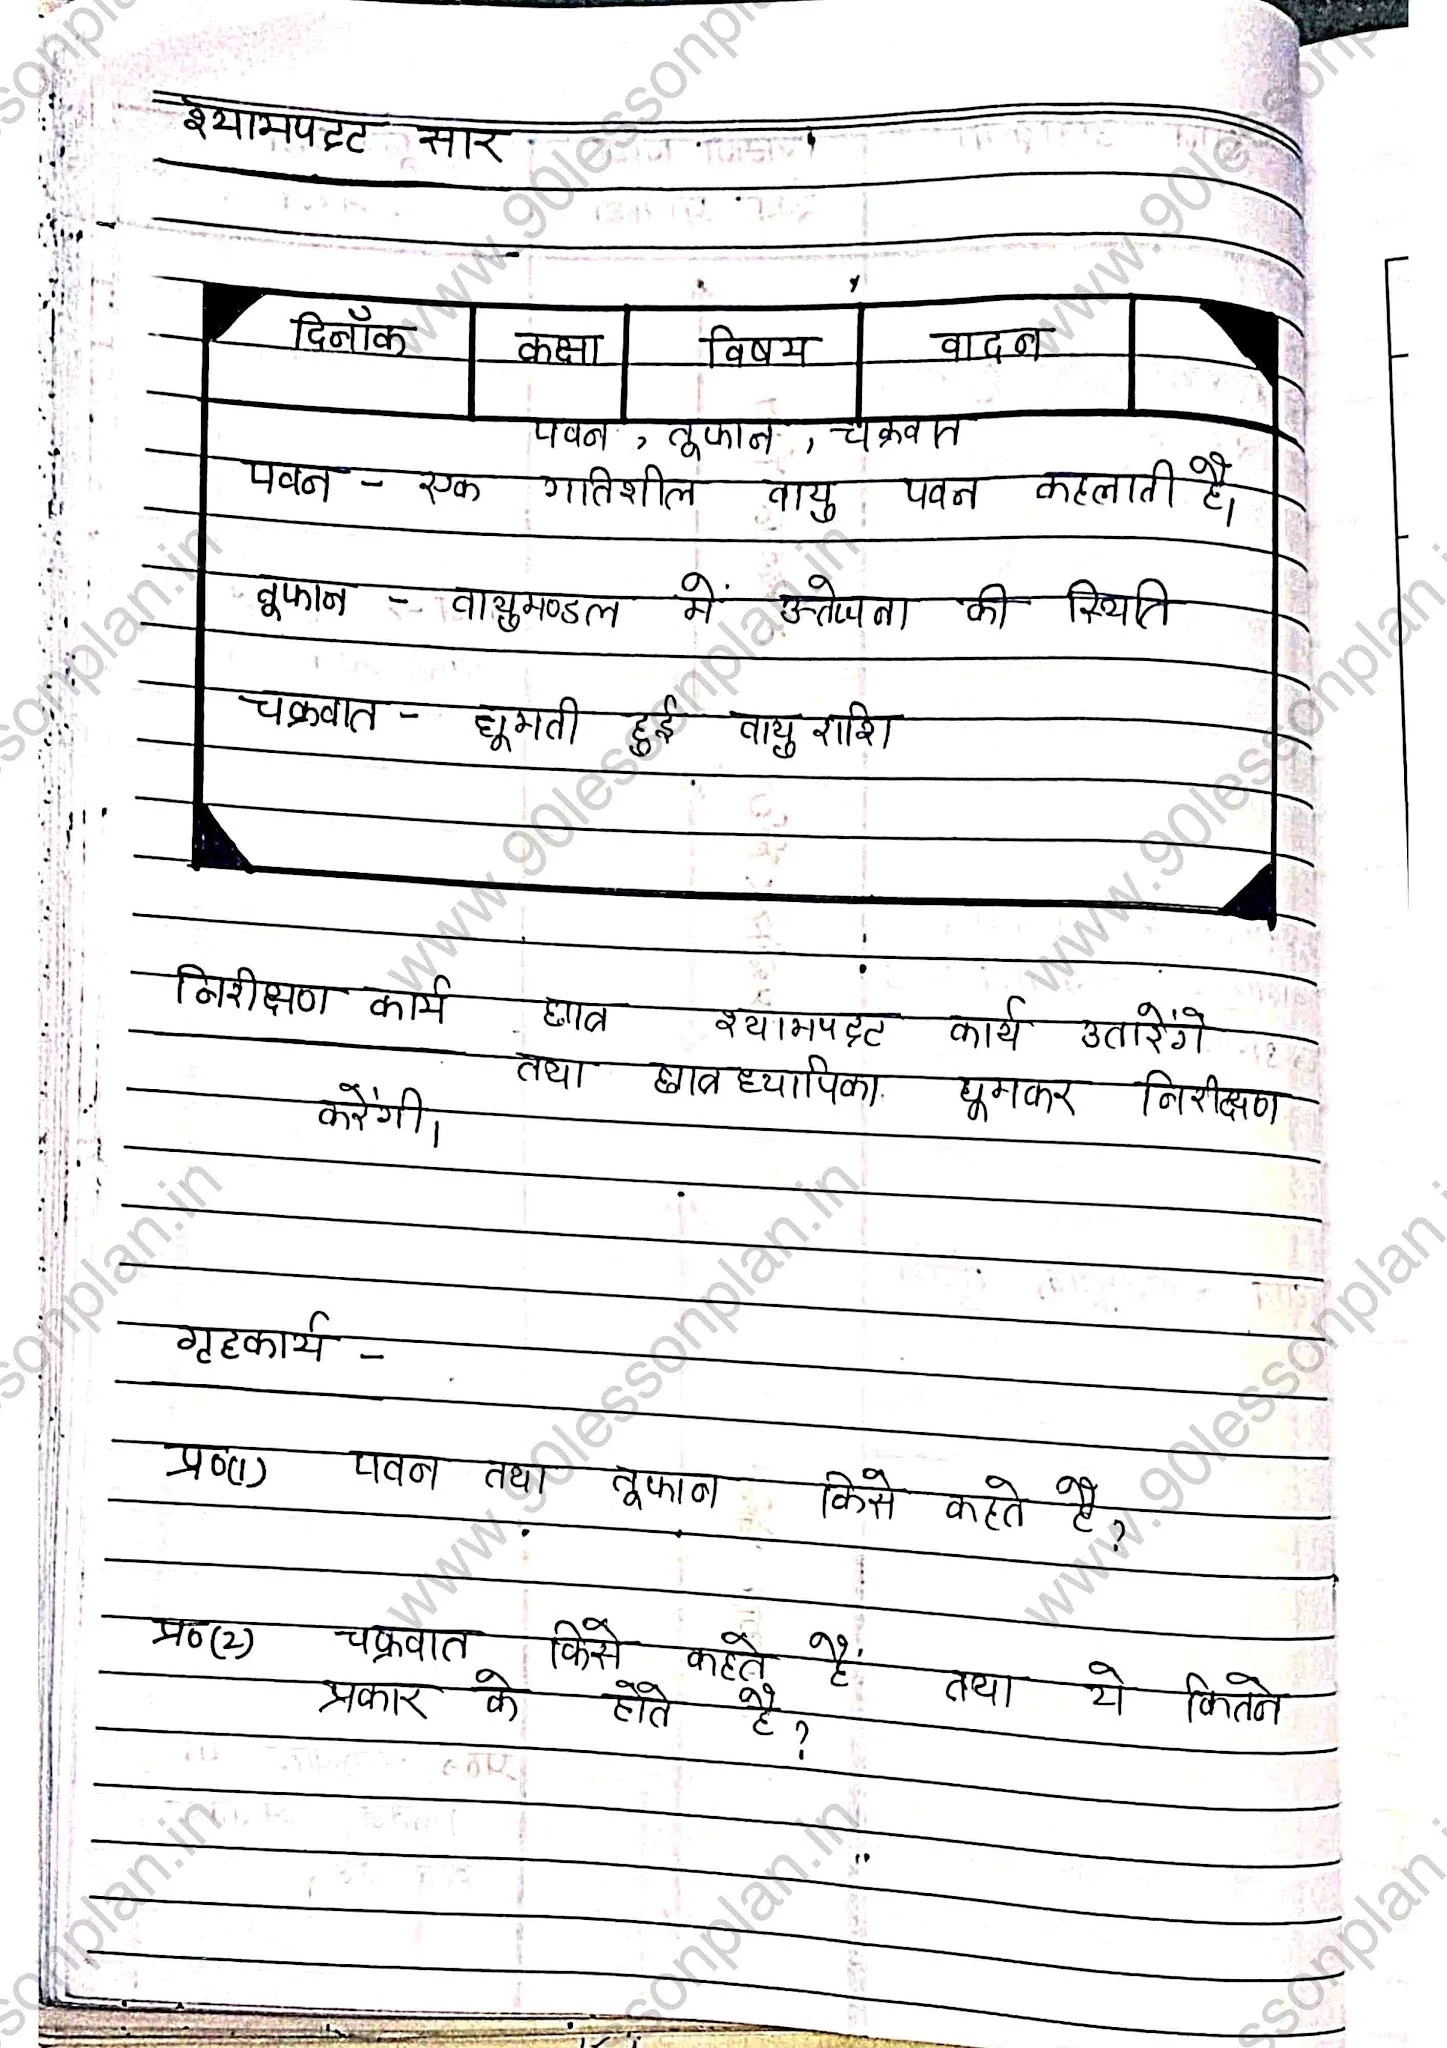 श्यामपट्ट सार
दिनाँक कक्षा विषय वादन
पवन, तूफान, चक्रवात
पवन - एक गतिशील वायु पवन कहलाती है।
तूफान - वायुमण्डल में उत्तेजना की स्थिति
चक्रवात - घूमती हुई वायु राशि
निरीक्षण कार्य छात्र श्यामपट्ट कार्य उतारेंगे
तथा छात्रध्यापिका घूमकर निरीक्षण
करेंगी।
गृहकार्य -
प्र०(1) पवन तथा तूफान किसे कहते है?
प्र०(2) चक्रवात किसे कहते हैं तथा ये कितने
प्रकार के होते है?
www.90lessonplan.in